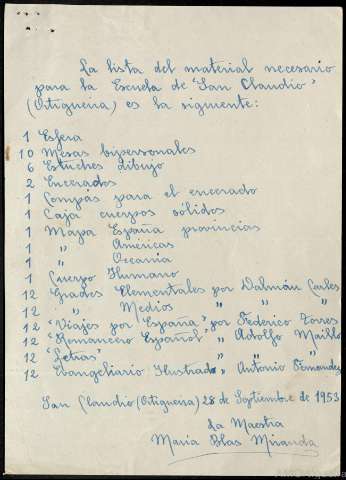 La lista del material necesario
para la Escuela de "San Claudio"
(Ortigueira) es la siguiente:
1 Esfera
10 Mesas bipersonales
6 Estuches dibujo
2 Encerados
1 Compás para el encerado
1 Caja cuerpos sólidos
1 Mapa España provincias
1 " Américas
1 " Oceanía
1 Cuerpo Humano
12 Grados Elementales por Dalmáu Carles
12 " Medios " " "
12 "Viajes por España" por Federico Torres
12 "Romancero Español" " Adolfo Maíllo
12 "Letras" " "
12 Evangeliario Ilustrado " Antonio Fernandez
San Claudio (Ortigueira) 28 de Septiembre de 1953
La Maestra
Maria Blas Miranda